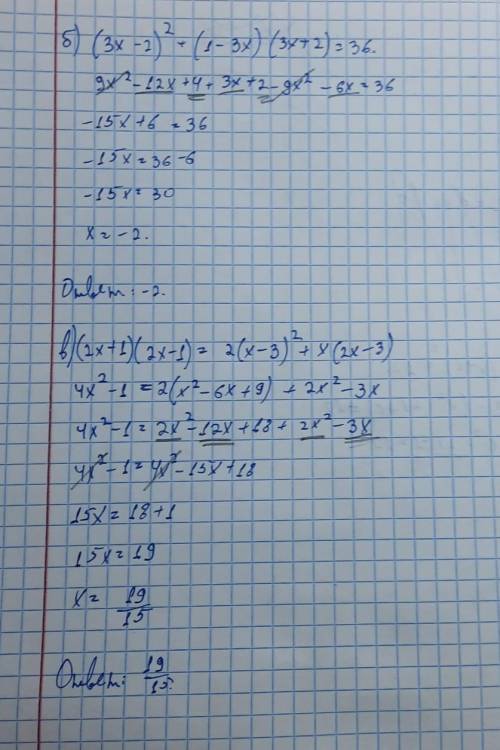 б) (3x - 2)² + (1 - 3x) (3x + 2) = 36.
9x² - 12x + 4 + 3x + 2 - 9x² - 6x = 36
-15x + 6 = 36
-15x = 36 - 6
-15x = 30
x = -2.
Ответ: -2.
в) (2x+1)(2x-1) = 2(x-3)² + x(2x-3)
4x² - 1 = 2(x² - 6x + 9) + 2x² - 3x
4x² - 1 = 2x² - 12x + 18 + 2x² - 3x
4x² - 1 = 4x² - 15x + 18
15x = 18 + 1
15x = 19
x = 19/15
Ответ: 19/15.